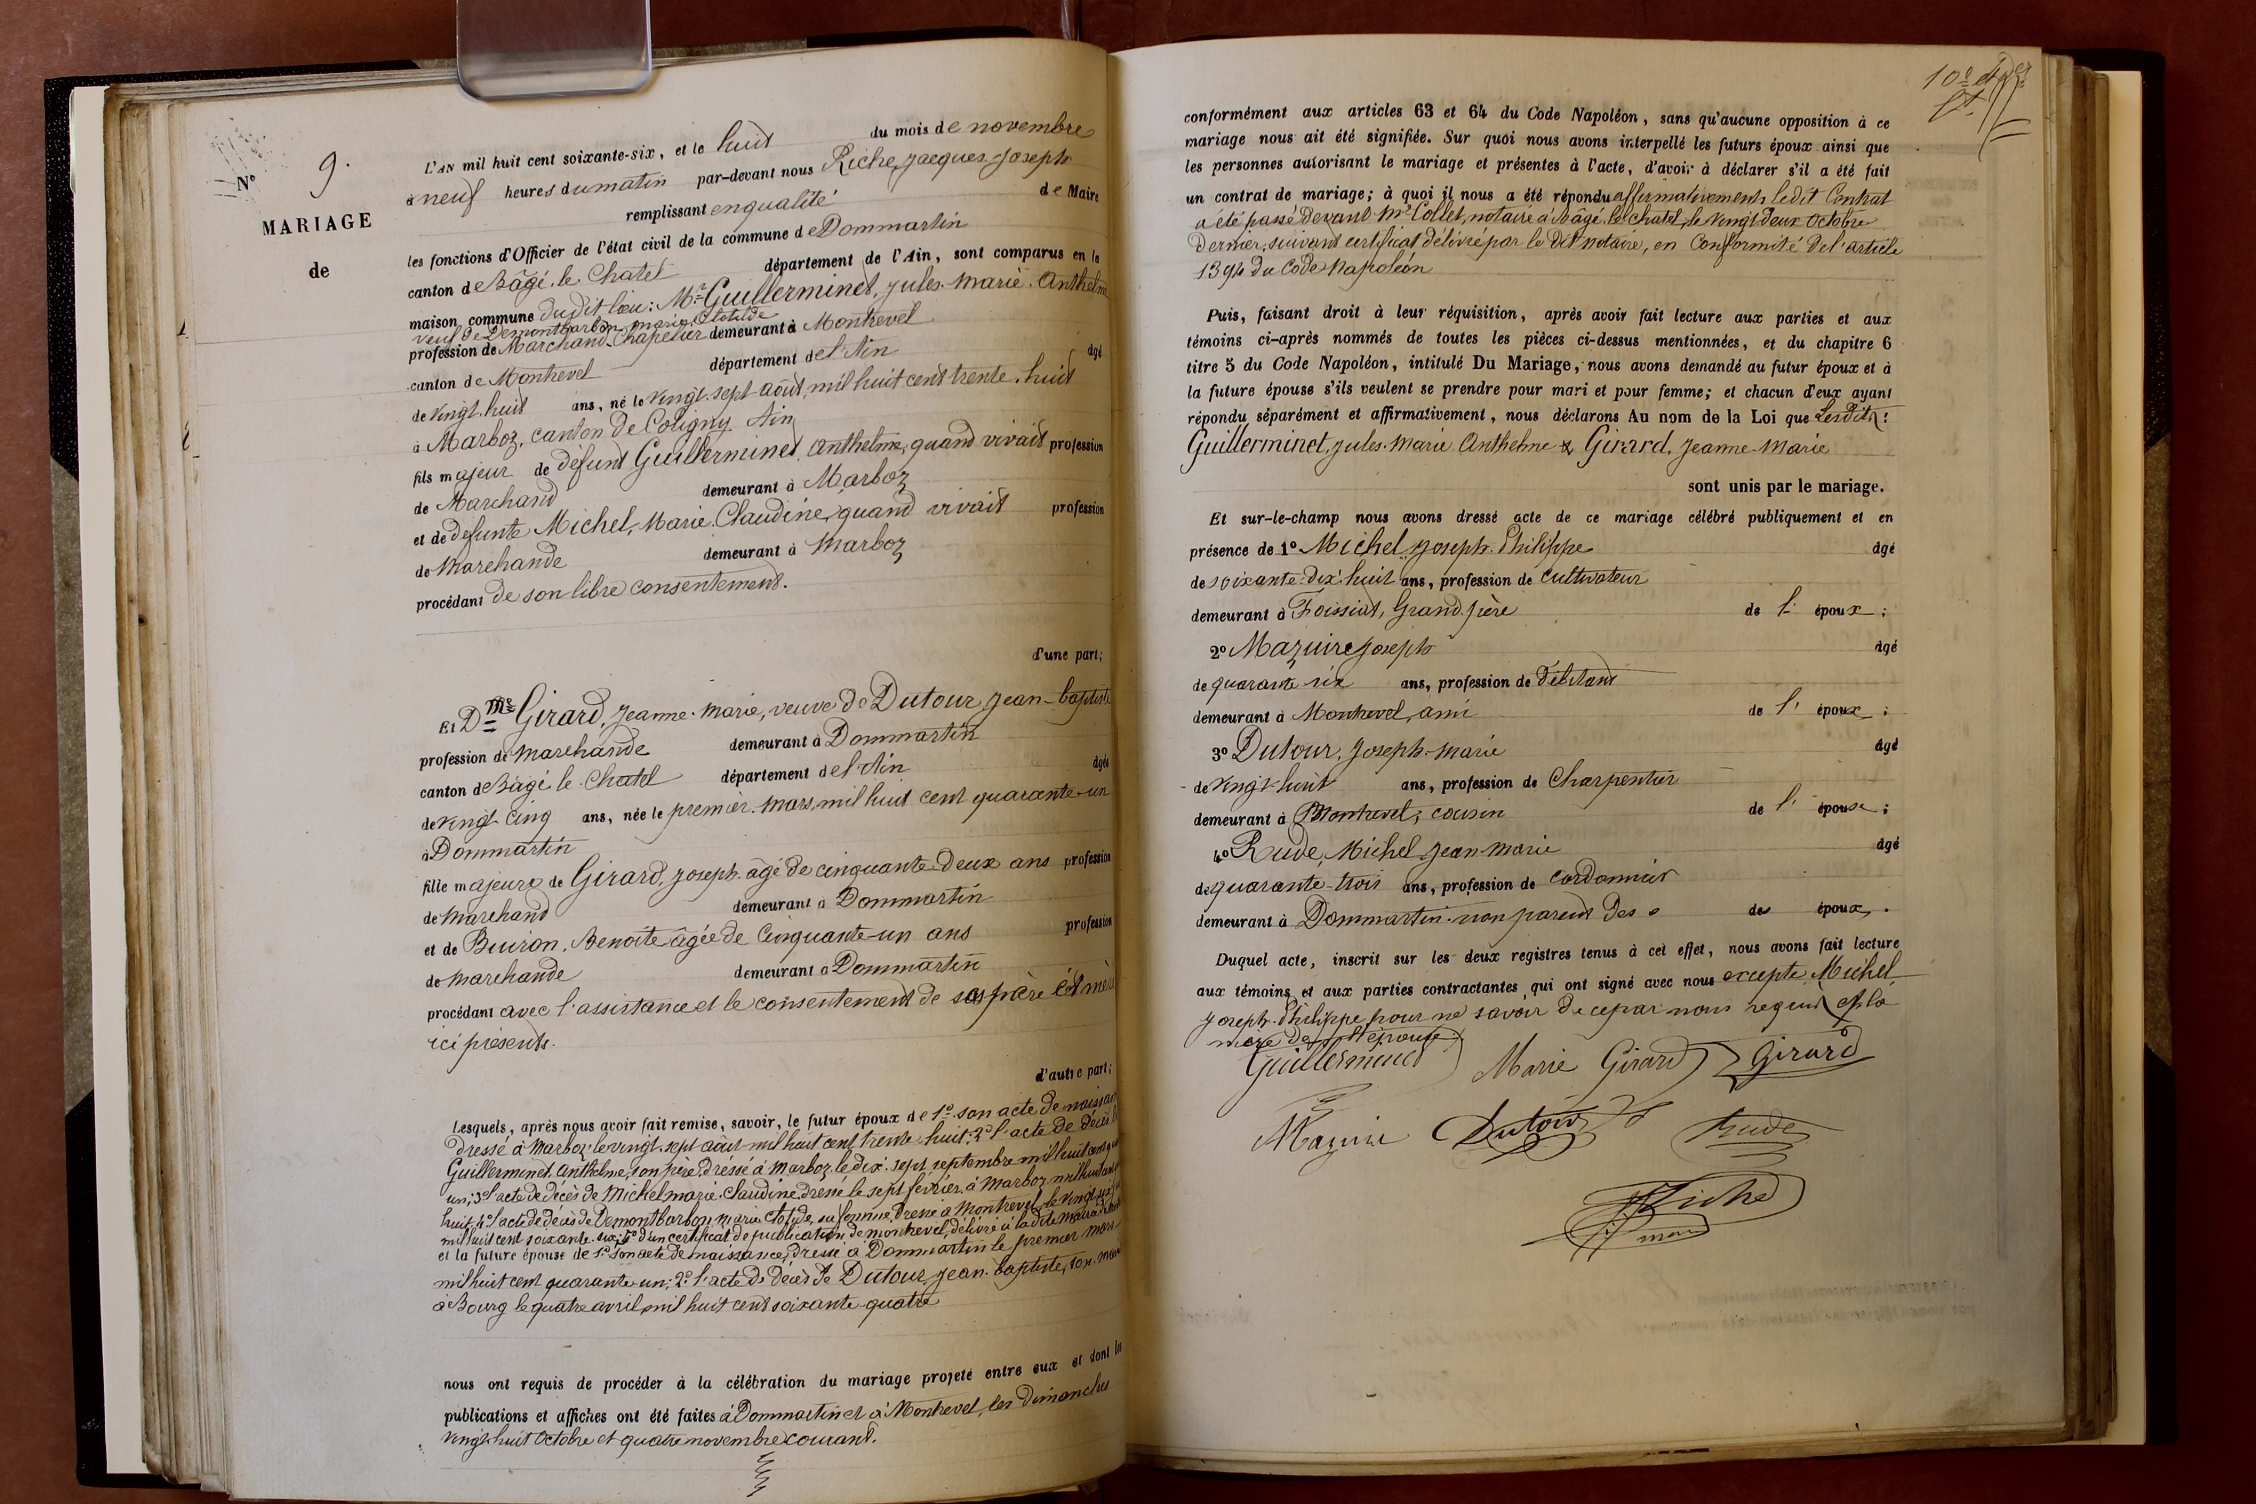 N° 9.
MARIAGE
de
L'AN mil huit cent soixante-six, et le huit du mois de novembre
à neuf heures du matin par-devant nous Riche, Jacques Joseph
remplissant en qualité de Maire
les fonctions d'Officier de l'état civil de la commune de Dommartin
canton de Bâgé le Chatel département de l'Ain, sont comparus en la
maison commune dudit lieu: Mr Guillerminet, Jules Marie Anthelme
veuf de Demontbarbon, marie Clotilde
profession de Marchand-Chapelier demeurant à Montrevel
canton de Montrevel département de l'Ain âgé
de vingt-huit ans, né le vingt-sept août, mil huit cent trente-huit
à Marboz, canton de Coligny Ain
fils majeur de défunt Guillerminet, Anthelme, quand vivait profession
de Marchand demeurant à Marboz
et de défunte Michel, Marie Claudine, quand vivait profession
de Marchande demeurant à Marboz
procédant de son libre consentement.
d'une part;
Et Dme Girard, Jeanne-Marie, veuve de Dutour, Jean-baptiste
profession de Marchande demeurant à Dommartin
canton de Bâgé le Chatel département de l'Ain âgée
de vingt-cinq ans, née le premier Mars, mil huit cent quarante-un
à Dommartin
fille majeure de Girard, Joseph âgé de cinquante-deux ans profession
de Marchand demeurant à Dommartin
et de Buiron, Benoite âgée de Cinquante-un ans profession
de Marchande demeurant à Dommartin
procédant avec l'assistance et le consentement de ses père et mère
ici présents.
d'autre part;
Lesquels, après nous avoir fait remise, savoir, le futur époux de 1° son acte de naissance
dressé à Marboz le vingt-sept août mil huit cent trente-huit; 2° l'acte de décès de
Guillerminet, Anthelme, son père, dressé à Marboz le dix-sept septembre mil huit cent
un; 3° l'acte de décès de Michel marie-Claudine dressé le sept février à Marboz mil huit cent
huit, 4° l'acte de décès de Demontbarbon, Marie Clotyde, sa femme, dressé à Montrevel, le vingt-six
mil huit cent soixante-six; 5° d'un certificat de publication, de montrevel, délivré à la dite mairie
et la future épouse de 1° son acte de naissance, dressé à Dommartin le premier Mars
mil huit cent quarante-un; 2° l'acte de décès de Dutour, Jean-baptiste, son mari
à Bourg le quatre avril, mil huit cent soixante-quatre
nous ont requis de procéder à la célébration du mariage projeté entre eux et dont les
publications et affiches ont été faites à Dommartin et à Montrevel, les dimanches
vingt-huit Octobre et quatre novembre courant.
conformément aux articles 63 et 64 du Code Napoléon, sans qu'aucune opposition à ce
mariage nous ait été signifiée. Sur quoi nous avons interpellé les futurs époux ainsi que
les personnes autorisant le mariage et présentes à l'acte, d'avoir à déclarer s'il a été fait
un contrat de mariage; à quoi il nous a été répondu affirmativement, ledit Contrat
a été passé devant Me Collet, notaire à Bâgé-le-chatel, le vingt-deux Octobre
dernier, suivant certificat délivré par le dit notaire, en Conformité de l'article
1394 du Code Napoléon
Puis, faisant droit à leur réquisition, après avoir fait lecture aux parties et aux
témoins ci-après nommés de toutes les pièces ci-dessus mentionnées, et du chapitre 6
titre 5 du Code Napoléon, intitulé Du Mariage, nous avons demandé au futur époux et à
la future épouse s'ils veulent se prendre pour mari et pour femme; et chacun d'eux ayant
répondu séparément et affirmativement, nous déclarons Au nom de la Loi que Lesdits:
Guillerminet, Jules-Marie Anthelme & Girard, Jeanne-Marie
sont unis par le mariage.
Et sur-le-champ nous avons dressé acte de ce mariage célébré publiquement et en
présence de 1° Michel, Joseph-Philippe âgé
de soixante-dix-huit ans, profession de cultivateur
demeurant à Foissiat, Grand père de l' époux;
2° Mazuire Joseph âgé
de quarante-six ans, profession de débitant
demeurant à Montrevel, ami de l' époux;
3° Dutour, Joseph-Marie âgé
de vingt-huit ans, profession de Charpentier
demeurant à Montrevel; cousin de l' épouse;
4° Rude, Michel Jean-Marie âgé
de quarante-trois ans, profession de cordonnier
demeurant à Dommartin non parent des époux.
Duquel acte, inscrit sur les deux registres tenus à cet effet, nous avons fait lecture
aux témoins et aux parties contractantes qui ont signé avec nous excepté Michel,
Joseph-Philippe pour ne savoir de ce par nous requis et la
mère de l'épouse.
Guillerminet Marie Girard Girard
Mazuire Dutour Rude
Riche
maire